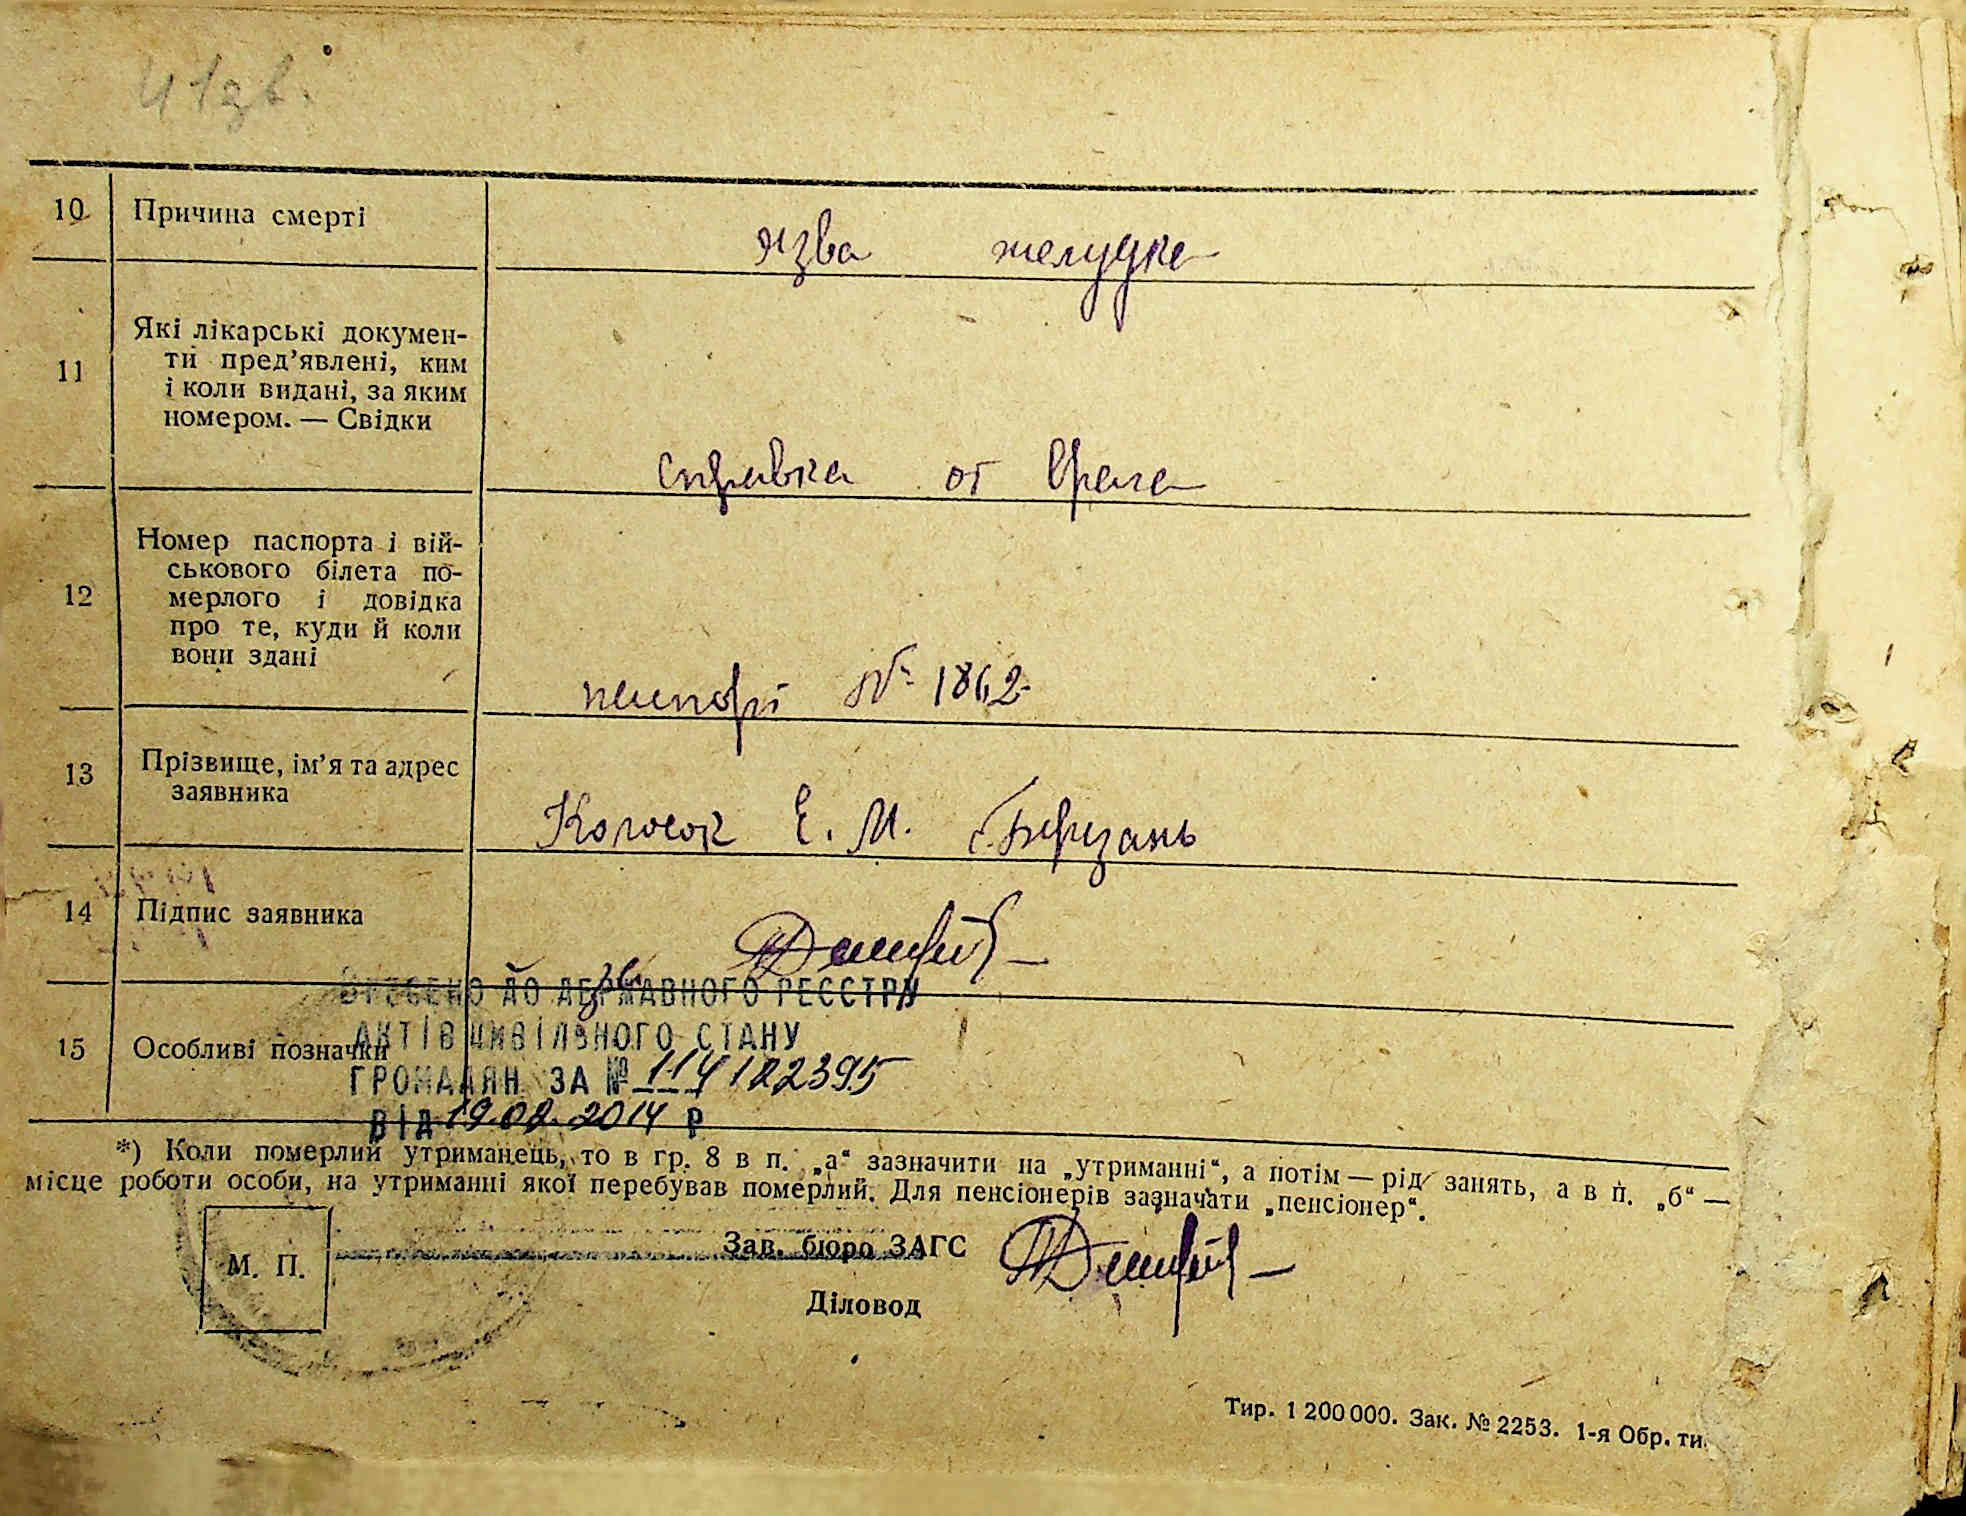 10
Причина смерті
язва желудка
11
Які лікарські докумен-
ти пред’явлені, ким
і коли видані, за яким
номером. — Свідки
справка от врача
12
Номер паспорта і вій-
ськового білета по-
мерлого і довідка
про те, куди й коли
вони здані
паспорт № 1862
13
Прізвище, ім’я та адрес
заявника
Колосок Е. М. г. Березань
14
Підпис заявника
ВНЕСЕНО ДО ДЕРЖАВНОГО РЕЄСТРУ
15
Особливі позначки
АКТІВ ЦИВІЛЬНОГО СТАНУ
ГРОМАДЯН ЗА № 114122395
ВІД 19.02.2014 Р
*) Коли померлий утриманець, то в гр. 8 в п. „а“ зазначити на „утриманні“, а потім — рід занять, а в п. „б“ —
місце роботи особи, на утриманні якої перебував померлий. Для пенсіонерів зазначати „пенсіонер“.
М. П.
Зав. бюро ЗАГС
Діловод
Тир. 1 200 000. Зак. № 2253. 1-я Обр. ти